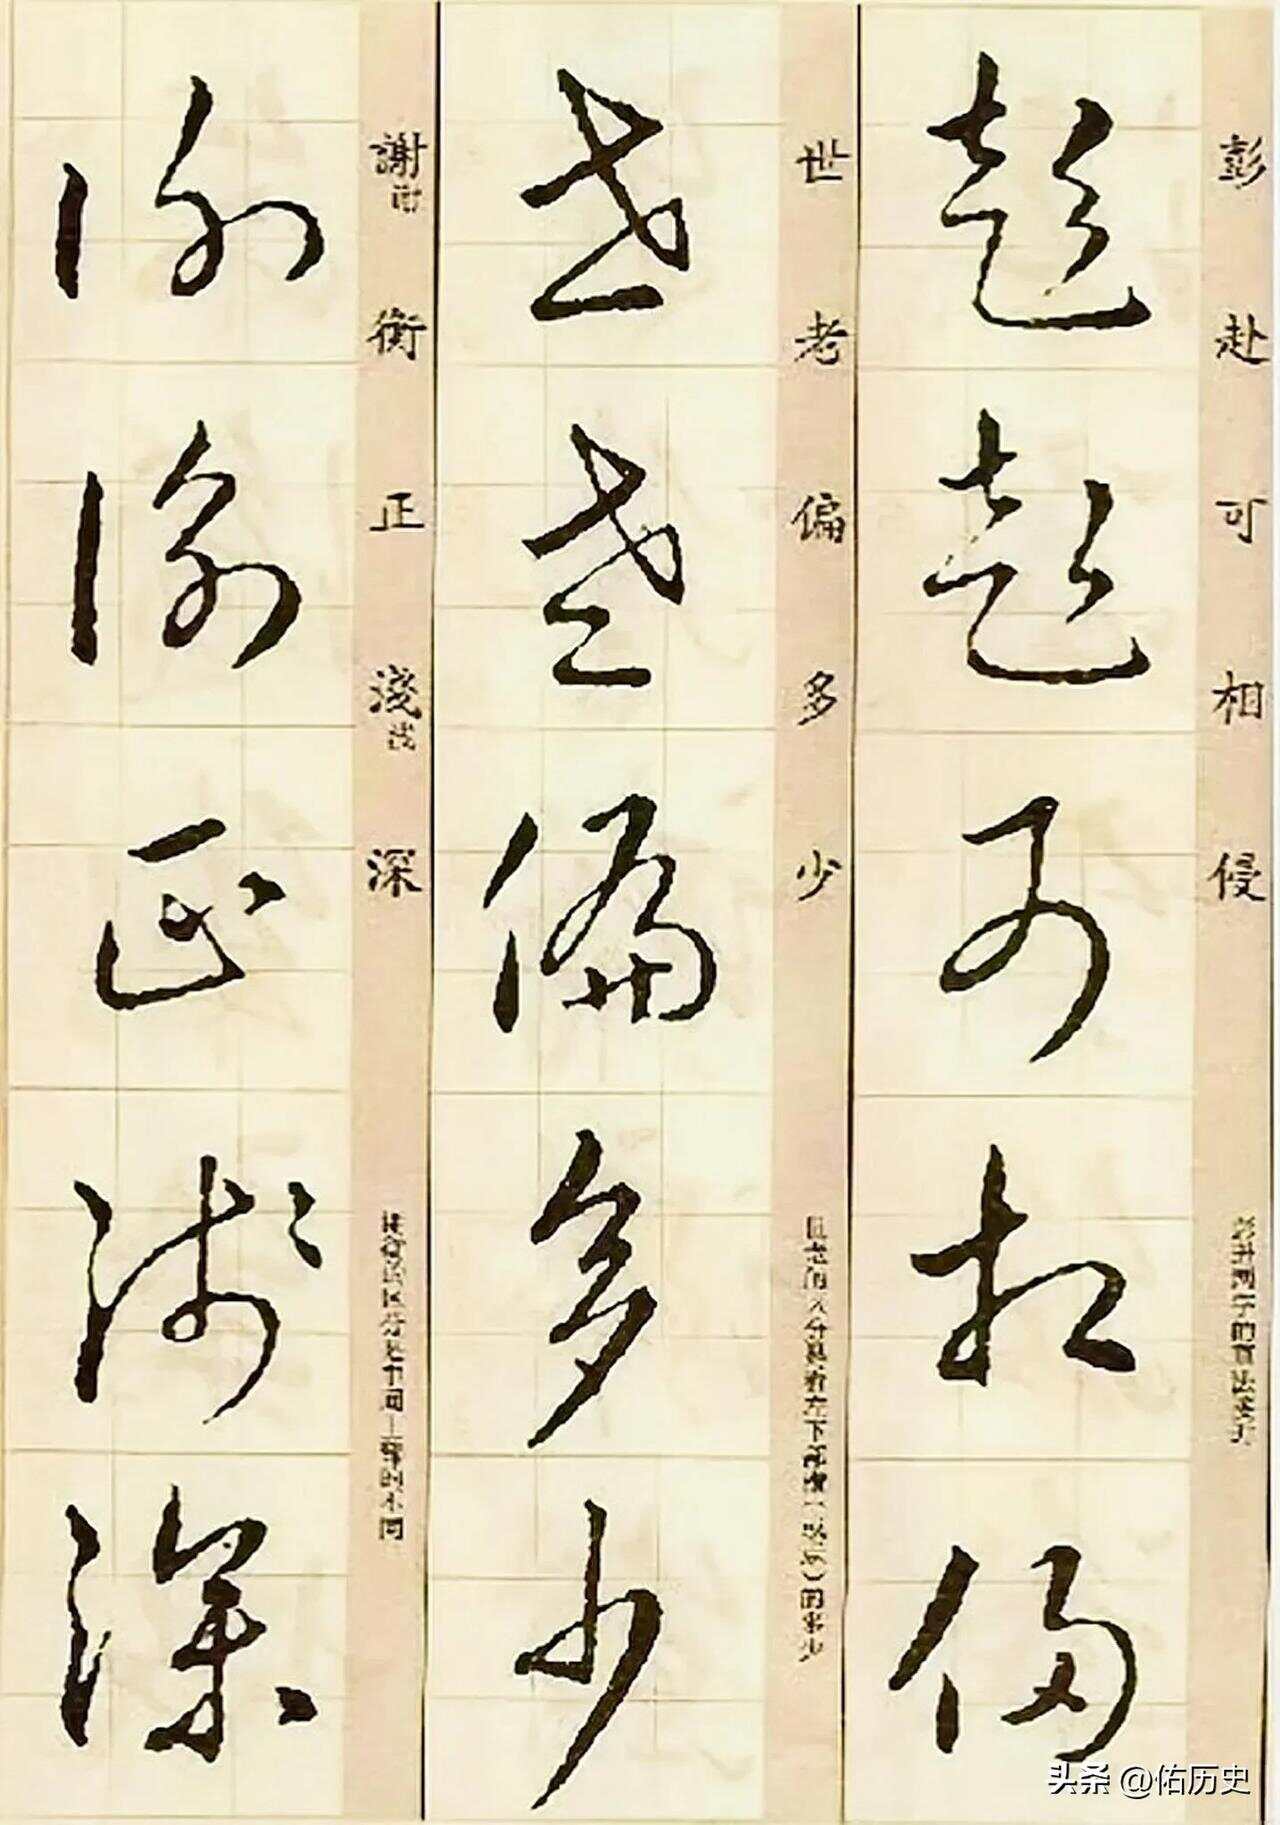 彭赴可相侵
彭赴可相侵
世老偏多少
世老偏多少
謝谢衡正淺浅深
谢衡正浅深
头条 @佑历史